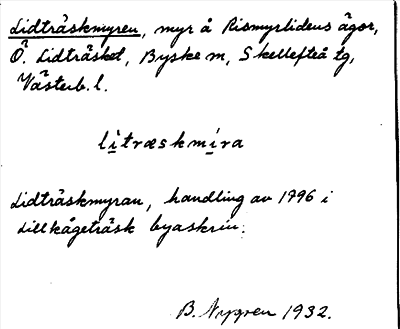 Lidträskmyren, myr å Rismyrlidens ägor,
Ö. Lidträsket, Byske sn, Skellefteå tg,
Västerb. l.
lìtræskmìra
Lidträskmyran, handling av 1796 i
Lillkågeträsk byaskrin.
B. Nygren 1932.